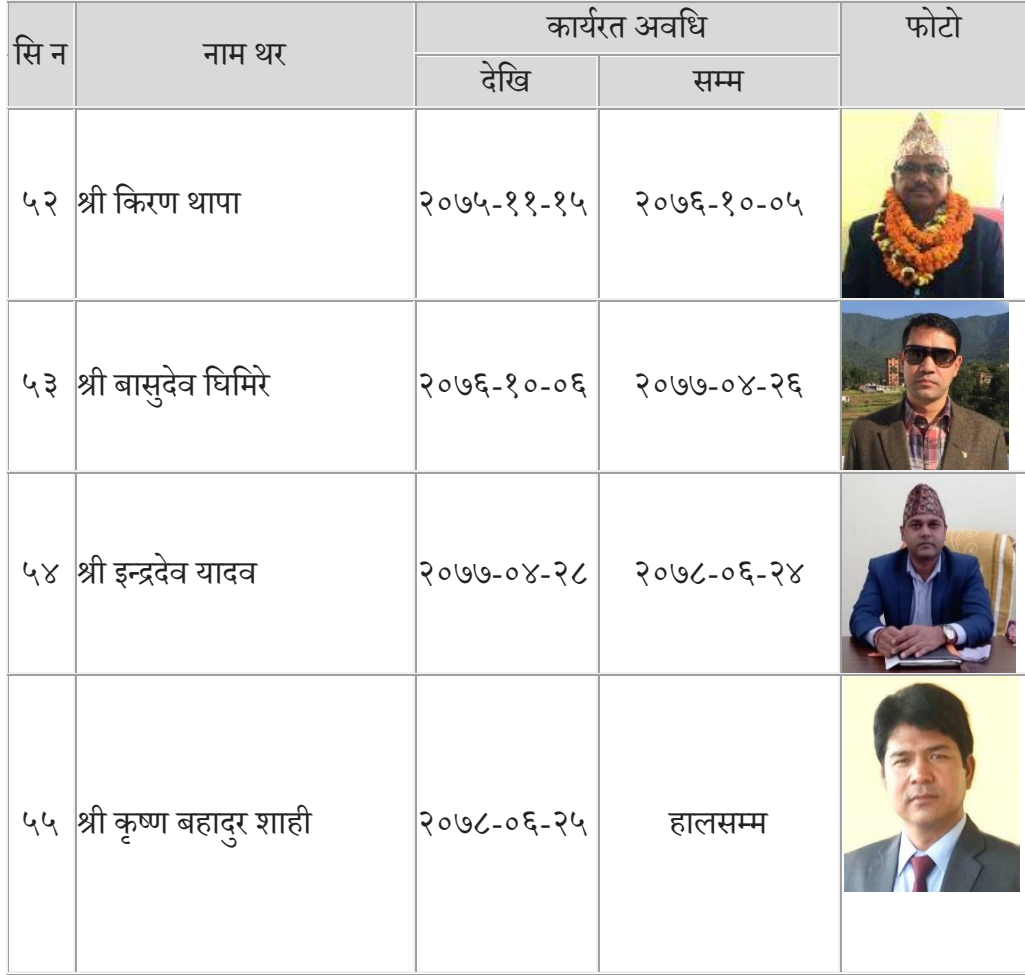 सि न नाम थर कार्यरत अवधि फोटो
देखि सम्म
५२ श्री किरण थापा २०७५-११-१५ २०७६-१०-०५
५३ श्री बासुदेव घिमिरे २०७६-१०-०६ २०७७-०४-२६
५४ श्री इन्द्रदेव यादव २०७७-०४-२८ २०७८-०६-२४
५५ श्री कृष्ण बहादुर शाही २०७८-०६-२५ हालसम्म